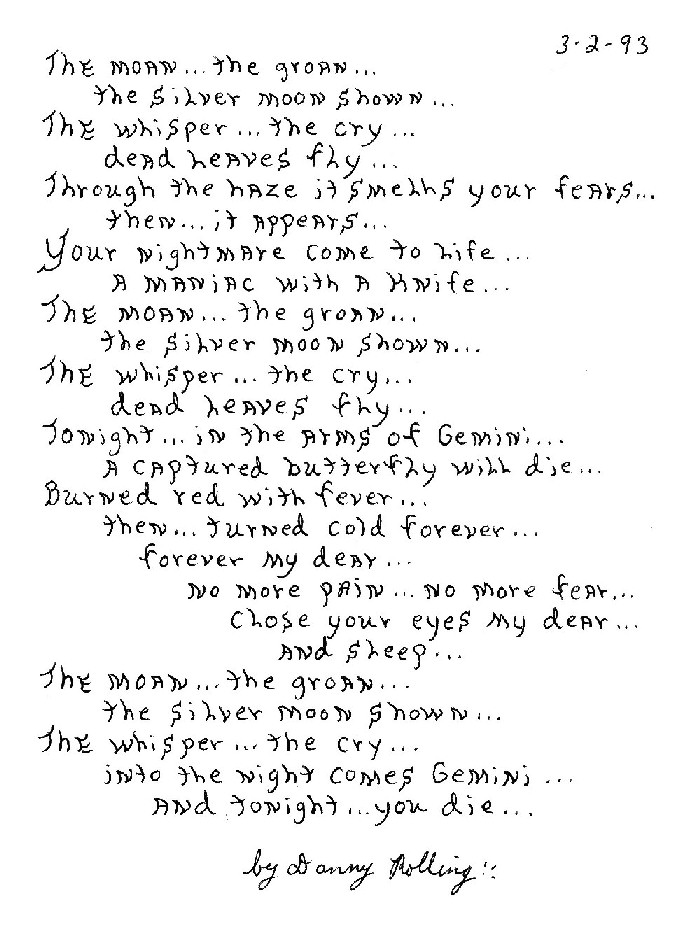 3-2-93
The moan...the groan...
the silver moon shown...
The whisper...the cry...
dead leaves fly...
Through the haze it smells your fears...
then...it appears...
Your nightmare come to life...
A maniac with a knife...
The moan...the groan...
the silver moon shown...
The whisper...the cry...
dead leaves fly...
Tonight...in the arms of Gemini...
A captured butterfly will die...
Burned red with fever...
then...turned cold forever...
forever my dear...
no more pain...no more fear...
Close your eyes my dear...
And sleep...
The moan...the groan...
the silver moon shown...
The whisper...the cry...
into the night comes Gemini...
And tonight...you die...
by Danny Rolling!!